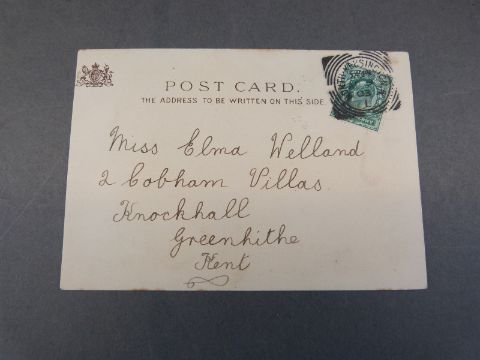 POST CARD.
THE ADDRESS TO BE WRITTEN ON THIS SIDE.
Miss Elma Welland
2 Cobham Villas
Knockhall
Greenhithe
Kent